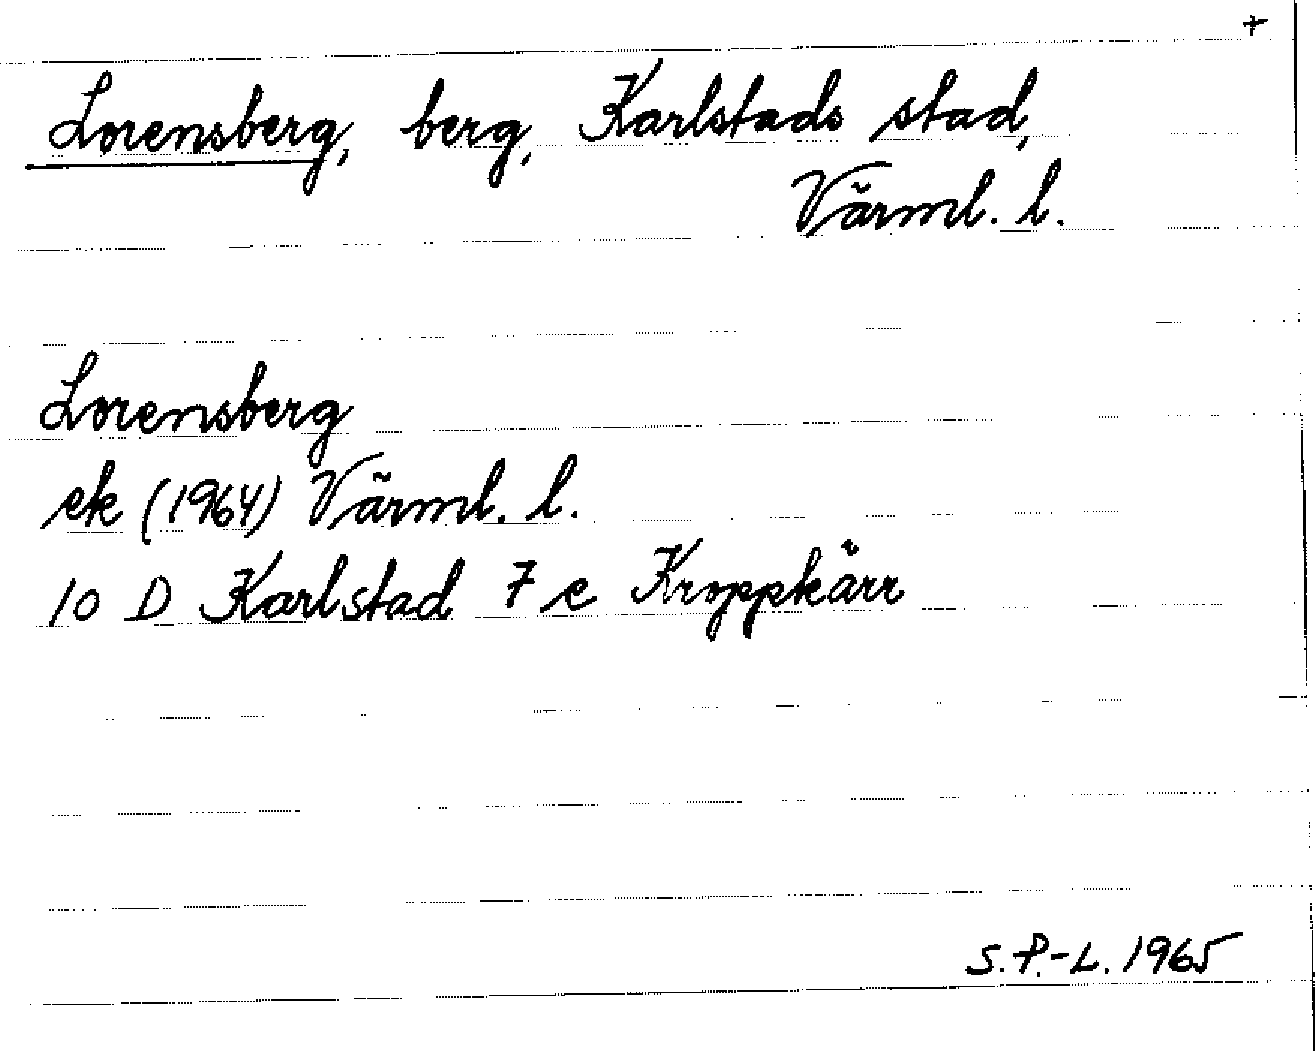 +
Lorensberg, berg, Karlstads stad,
Värml. l.
Lorensberg
ek (1964) Värml. l.
10 D Karlstad 7 e Kroppkärr
S.P.-L. 1965